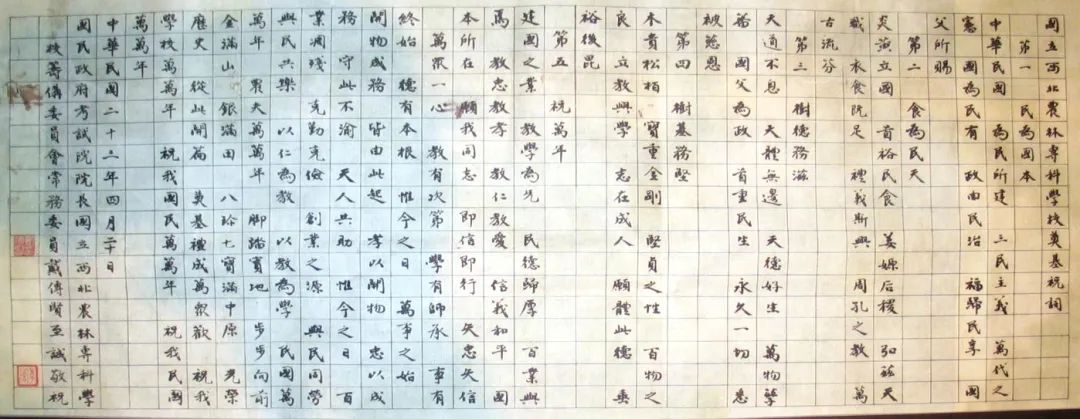 國立西北農林專科學校奠基祝詞
第一 民為國本
中華民國 為民所建 三民主義 萬代之
憲 國為民有 政由民治 福歸民享 國
父所賜
第二 食為民天
炎黃立國 首裕民食 姜嫄后稷 弘茲天
職 衣食既足 禮義斯興 周孔之教 萬
古流芬
第三 樹德務滋
天道不息 天體無邊 天德好生 萬物孳
蕃 國父為政 首重民生 永久一切 悉
被慈恩
第四 樹基務堅
木貴松柏 寶重金剛 堅貞之性 百物之
良 立教興學 志在成人 願體此德 垂
裕後昆
第五 祝萬年
建國之業 教學為先 民德歸厚 百業興
焉 教忠教孝 教仁教愛 信義和平 國
本所在 願我同志 即信即行 矢忠矢信
萬眾一心 教有次第 學有師承 事有
終始 德有本根 惟今之日 萬事之始
開物成務 皆由此起 孝以開物 忠以成
務 守此不渝 天人共助 惟今之日 百
業凋殘 克勤克儉 創業之源 與民同勞
與民共樂 以仁為教 以教為學 民國萬
萬年 眾天萬萬年 腳踏實地 步步向前
金滿山 銀滿田 八珍七寶滿中原 光榮
歷史 從此開篇 奠基禮成萬眾歡 祝我
學校萬萬年 祝我國民萬萬年 祝我民國
萬萬年
中華民國二十三年四月二十日
國民政府考試院院長國立西北農林專科學
校籌備委員會常務委員戴傳賢至誠敬祝